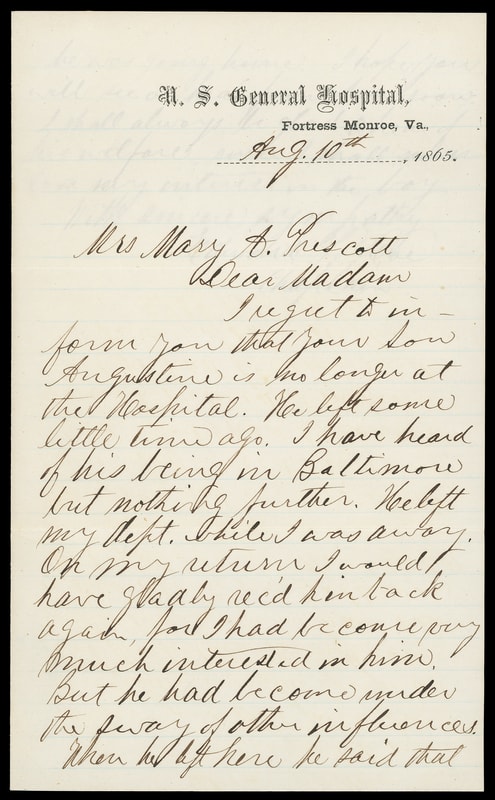 U. S. General Hospital,
Fortress Monroe, Va.,
Aug. 10th, 1865.
Mrs Mary A. Prescott
Dear Madam
I regret to in-
form you that your Son
Augustine is no longer at
the Hospital. He left some
little time ago. I have heard
of his being in Baltimore
but nothing further. He left
my dept. while I was away.
On my return I would
have gladly rec'd him back
again, for I had become very
much interested in him.
But he had become under
the sway of other influences.
When he left here he said that